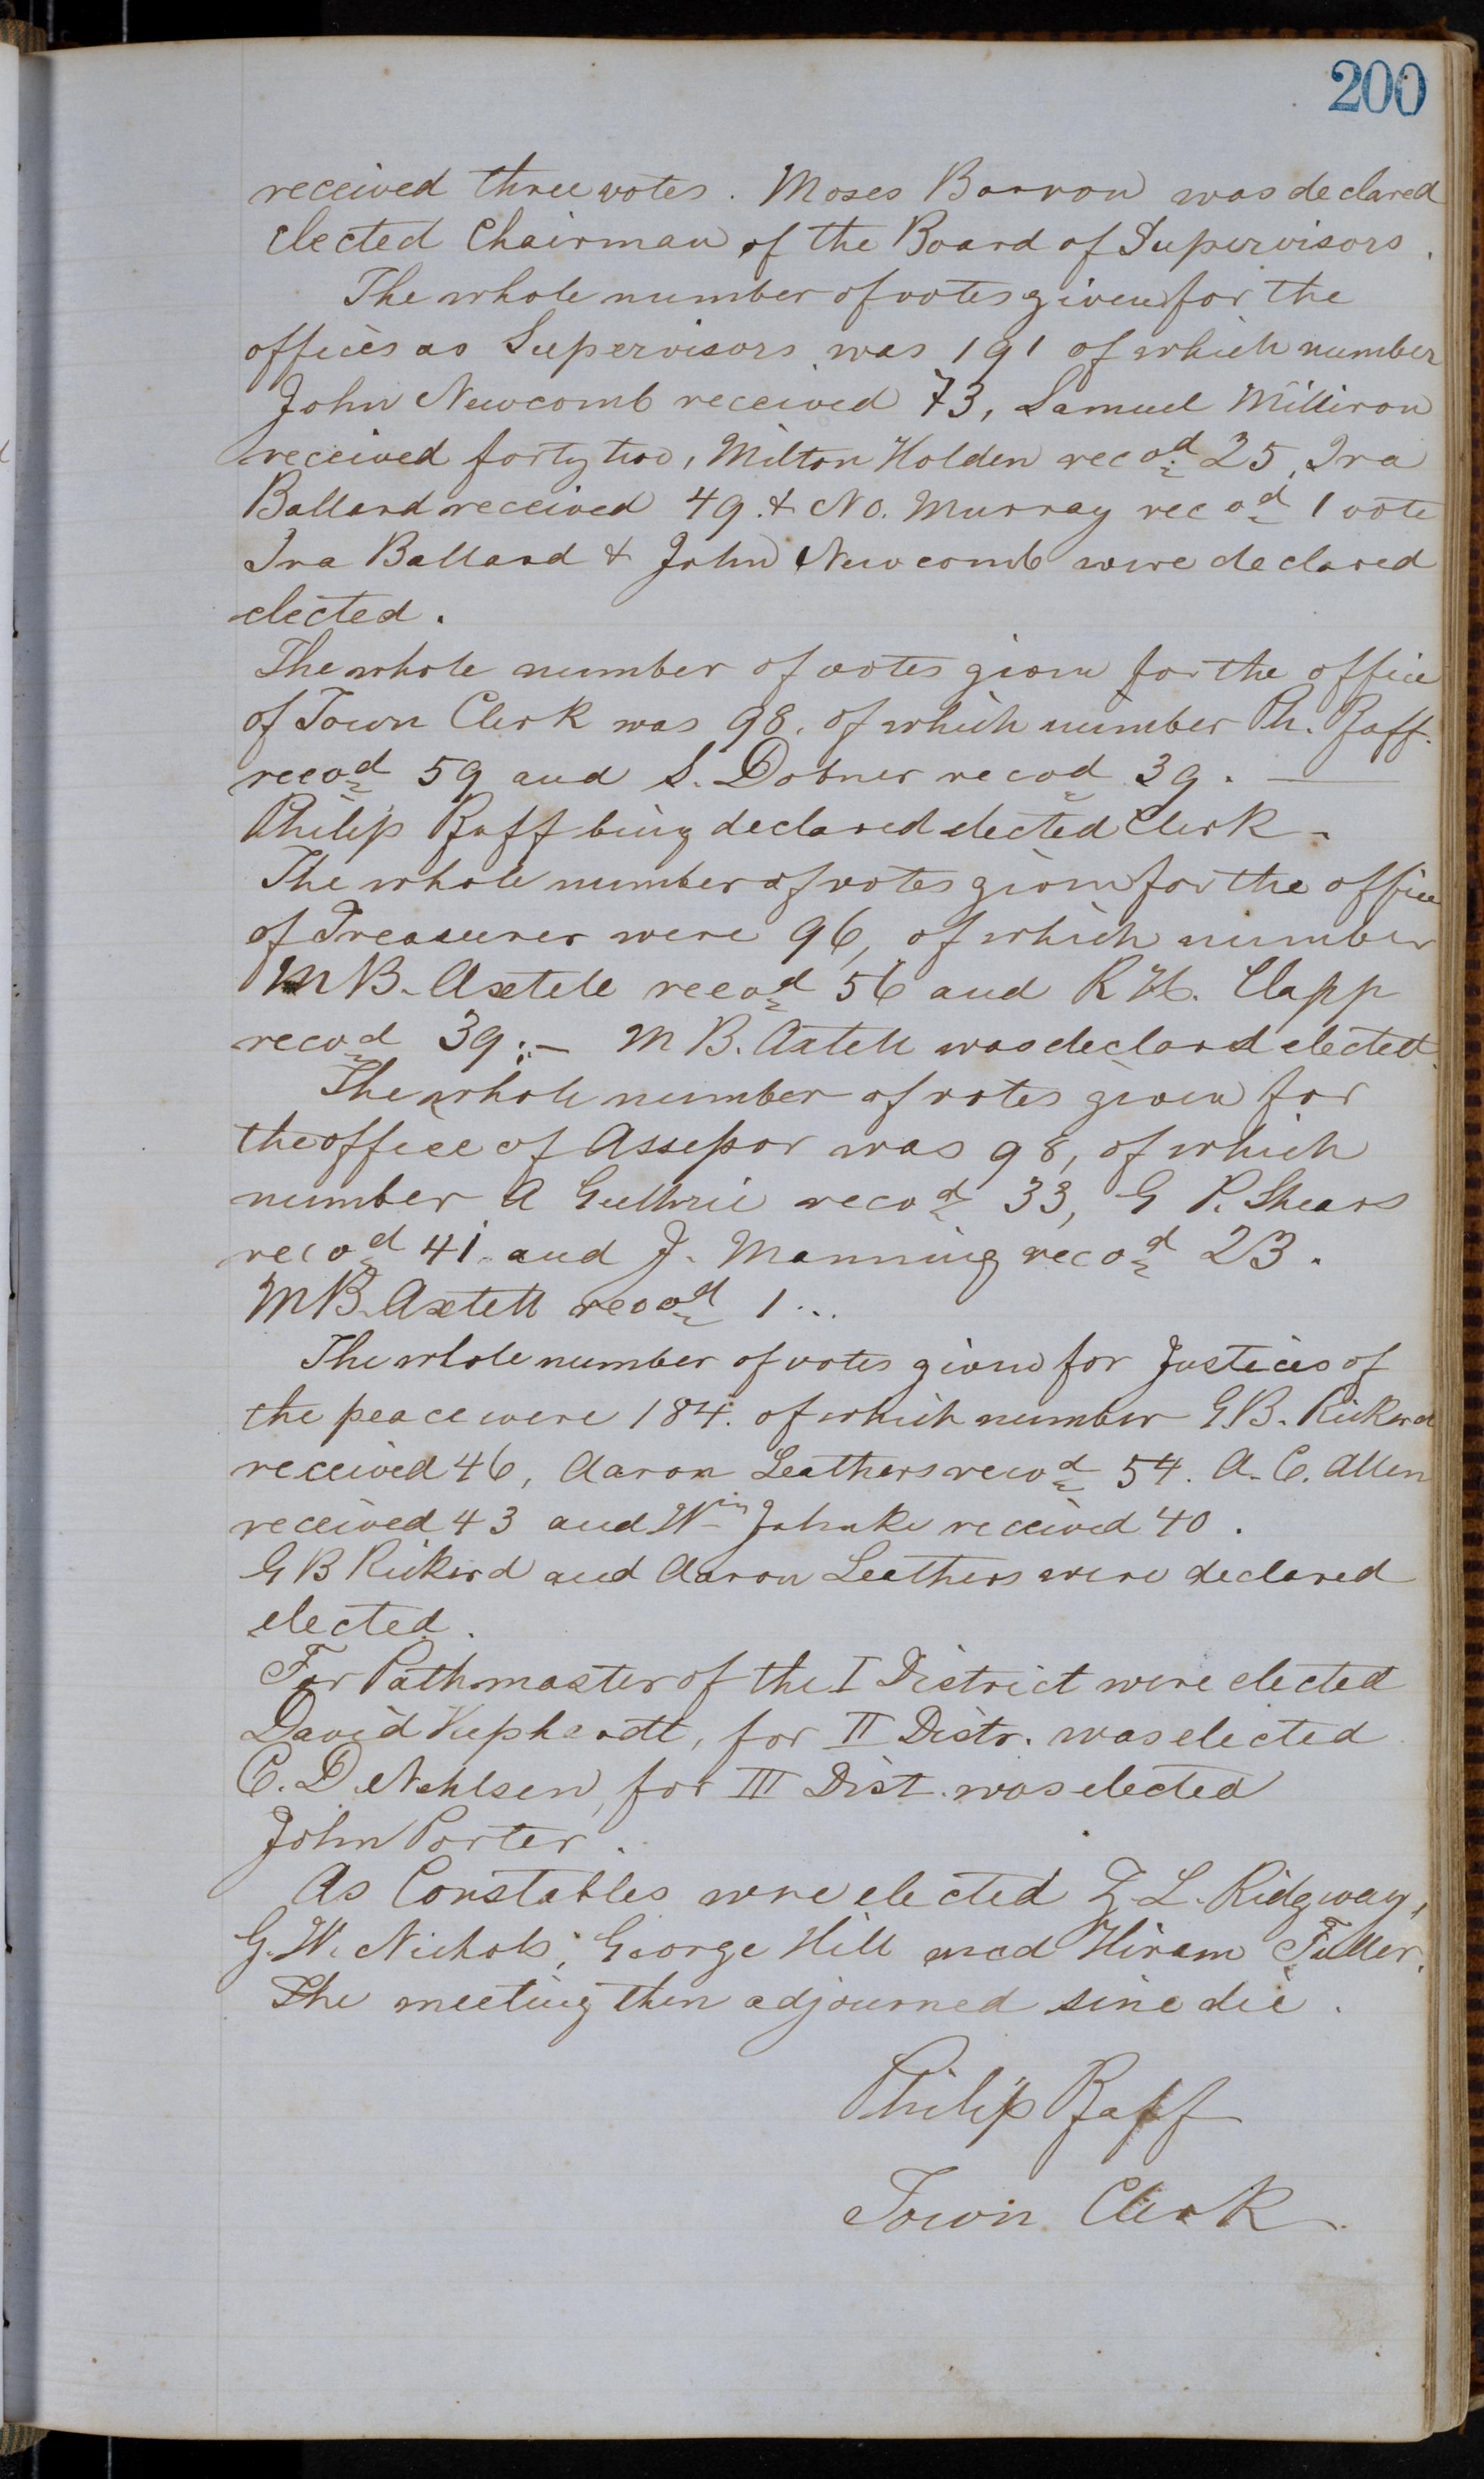 200
received three votes. Moses Barron was declared
elected Chairman of the Board of Supervisors.
The whole number of votes given for the
offices as Supervisors was 191 of which number
John Newcomb received 73, Samuel Milliron
received forty two, Milton Holden recod 25, Ira
Ballard received 49 & No. Murray recod 1 vote
Ira Ballard & John Newcomb were declared
elected.
The whole number of votes given for the office
of Town Clerk was 98. of which number Ph. Raff.
recod 59 and S. Dobner recod 39. —
Philip Raff being declared elected Clerk.
The whole number of votes given for the office
of Treasurer were 96, of which number
M B. Axtell recod 56 and R H. Clapp
recod 39:- M B. Axtell was declared elected.
The whole number of votes given for
the office of Assessor was 98, of which
number A Guthrie recod 33, G P. Shears
recod 41 and J. Manning recod 23.
M B. Axtell recod 1...
The whole number of votes given for Justices of
the peace were 184. of which number G. B. Rickerd
received 46, Aaron Leathers recod 54. A. C. Allen
received 43 and Wm Jahnke received 40.
G B Rickerd and Aaron Leathers were declared
elected.
For Pathmaster of the I District were elected
David Kephardt, for II Distr. was elected
C. D. Nehlsen, for III Dist. was elected
John Porter.
As Constables were elected Z. L. Ridgway,
G. W. Nichols, George Hill and Hiram Fuller.
The meeting then adjourned sine die.
Philip Raff
Town Clerk.